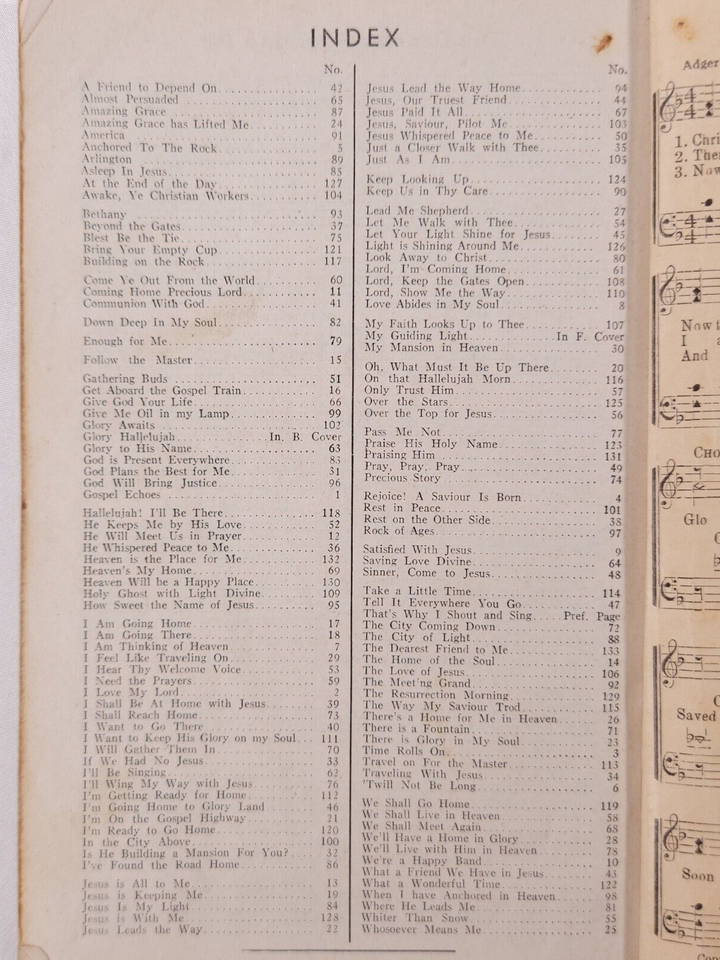 INDEX
No.
A Friend to Depend On 42
Almost Persuaded 65
Amazing Grace 87
Amazing Grace has Lifted Me 24
America 91
Anchored To The Rock 5
Arlington 89
Asleep In Jesus 85
At the End of the Day 127
Awake, Ye Christian Workers 104
Bethany 93
Beyond the Gates 37
Blest Be the Tie 75
Bring Your Empty Cup 121
Building on the Rock 117
Come Ye Out From the World 60
Coming Home Precious Lord 11
Communion With God 41
Down Deep In My Soul 82
Enough for Me 79
Follow the Master 15
Gathering Buds 51
Get Aboard the Gospel Train 16
Give God Your Life 66
Give Me Oil in my Lamp 99
Glory Awaits 102
Glory Hallelujah In. B. Cover
Glory to His Name 63
God is Present Everywhere 83
God Plans the Best for Me 31
God Will Bring Justice 96
Gospel Echoes 1
Hallelujah! I'll Be There 118
He Keeps Me by His Love 52
He Will Meet Us in Prayer 12
He Whispered Peace to Me 36
Heaven is the Place for Me 132
Heaven's My Home 69
Heaven Will be a Happy Place 130
Holy Ghost with Light Divine 109
How Sweet the Name of Jesus 95
I Am Going Home 17
I Am Going There 18
I Am Thinking of Heaven 7
I Feel Like Traveling On 29
I Hear Thy Welcome Voice 53
I Need the Prayers 59
I Love My Lord 2
I Shall Be At Home with Jesus 39
I Shall Reach Home 73
I Want to Go There 40
I Want to Keep His Glory on my Soul 111
I Will Gather Them In 70
If We Had No Jesus 33
I'll Be Singing 62
I'll Wing My Way with Jesus 76
I'm Getting Ready for Home 112
I'm Going Home to Glory Land 46
I'm On the Gospel Highway 21
I'm Ready to Go Home 120
In the City Above 100
Is He Building a Mansion For You? 32
I've Found the Road Home 86
Jesus is All to Me 13
Jesus is Keeping Me 19
Jesus Is My Light 84
Jesus is With Me 128
Jesus Leads the Way 22
No.
Jesus Lead the Way Home 94
Jesus, Our Truest Friend 44
Jesus Paid It All 67
Jesus, Saviour, Pilot Me 103
Jesus Whispered Peace to Me 50
Just a Closer Walk with Thee 35
Just As I Am 105
Keep Looking Up 124
Keep Us in Thy Care 90
Lead Me Shepherd 27
Let Me Walk with Thee 54
Let Your Light Shine for Jesus 45
Light is Shining Around Me 126
Look Away to Christ 80
Lord, I'm Coming Home 61
Lord, Keep the Gates Open 108
Lord, Show Me the Way 110
Love Abides in My Soul 8
My Faith Looks Up to Thee 107
My Guiding Light In F. Cover
My Mansion in Heaven 30
Oh, What Must It Be Up There 20
On that Hallelujah Morn 116
Only Trust Him 57
Over the Stars 125
Over the Top for Jesus 56
Pass Me Not 77
Praise His Holy Name 123
Praising Him 131
Pray, Pray, Pray 49
Precious Story 74
Rejoice! A Saviour Is Born 4
Rest in Peace 101
Rest on the Other Side 38
Rock of Ages 97
Satisfied With Jesus 9
Saving Love Divine 64
Sinner, Come to Jesus 48
Take a Little Time 114
Tell It Everywhere You Go 47
That's Why I Shout and Sing Pref. Page
The City Coming Down 72
The City of Light 88
The Dearest Friend to Me 133
The Home of the Soul 14
The Love of Jesus 106
The Meet'ng Grand 92
The Resurrection Morning 129
The Way My Saviour Trod 115
There's a Home for Me in Heaven 26
There is a Fountain 71
There is Glory in My Soul 23
Time Rolls On 3
Travel on For the Master 113
Traveling With Jesus 34
'Twill Not Be Long 6
We Shall Go Home 119
We Shall Live in Heaven 58
We Shall Meet Again 68
We'll Have a Home in Glory 28
We'll Live with Him in Heaven 78
We're a Happy Band 10
What a Friend We Have in Jesus 43
What a Wonderful Time 122
When I have Anchored in Heaven 98
Where He Leads Me 81
Whiter Than Snow 55
Whosoever Means Me 25
Adger
1. Chri
2. The
3. Now
Now t
I a
And
CHO
Glo
Saved
Soon